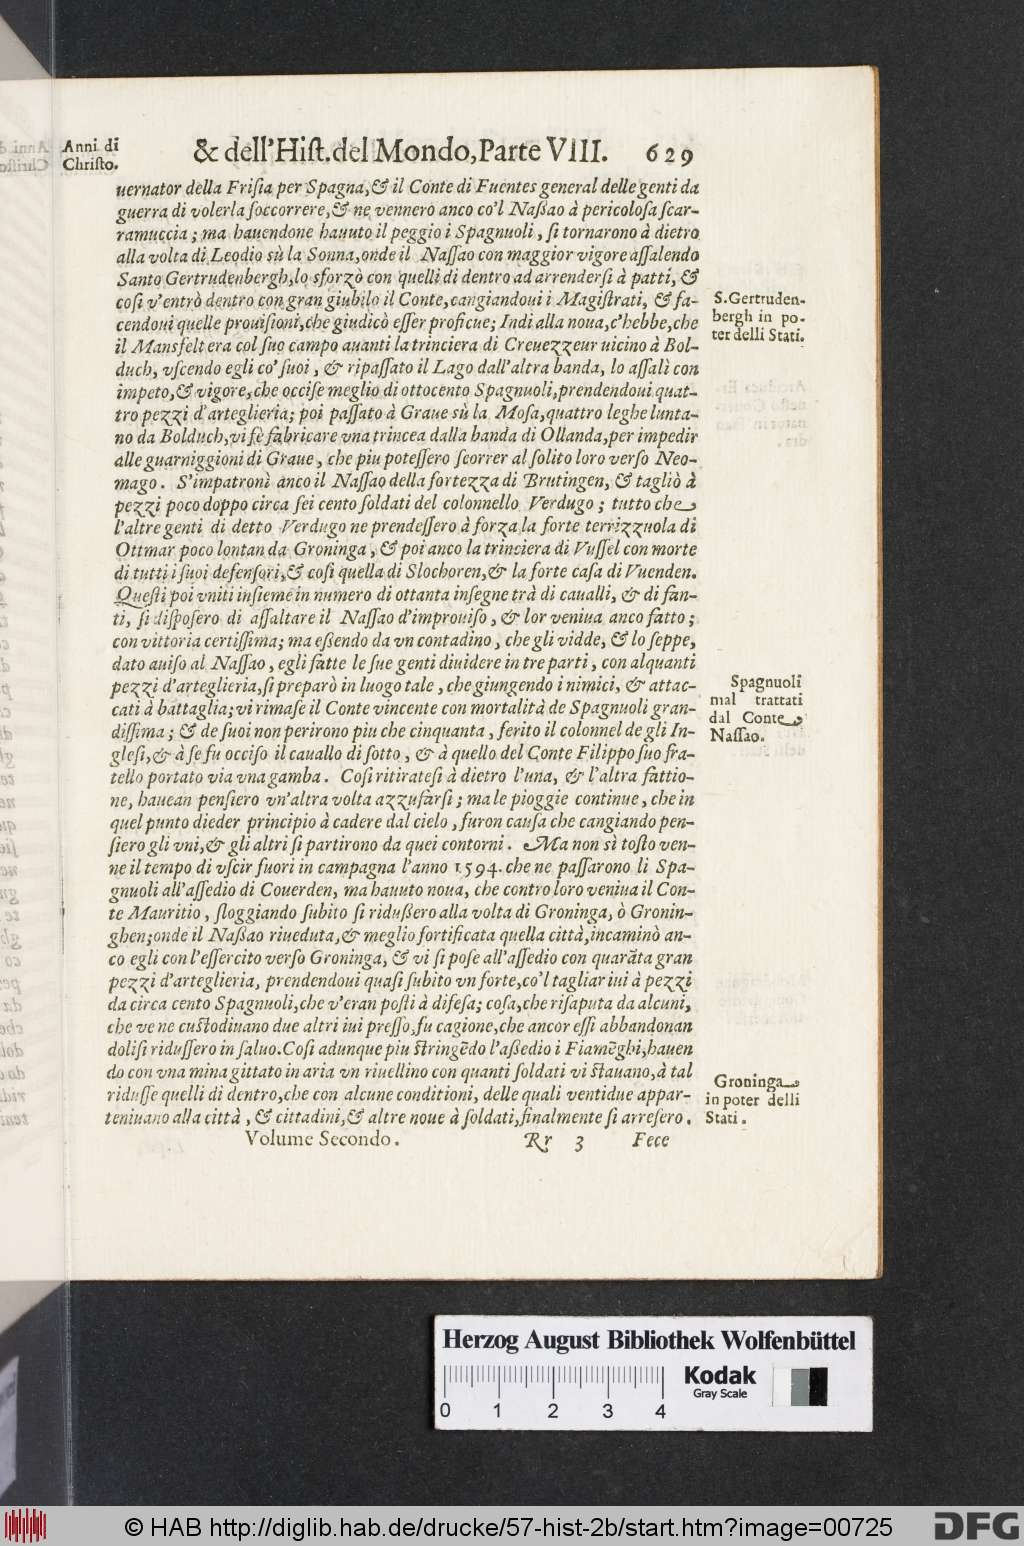 Anni di
Chriſto.
& dell'Hiſt. del Mondo, Parte VIII. 629
uernator della Friſia per Spagna, & il Conte di Fuentes general delle genti da
guerra di volerla ſoccorrere, & ne vennero anco co'l Naßao à pericoloſa ſcar-
ramuccia; ma hauendone hauuto il peggio i Spagnuoli, ſi tornarono à dietro
alla volta di Leodio sù la Sonna, onde il Naſſao con maggior vigore aſſalendo
Santo Gertrudenbergh, lo sforzò con quelli di dentro ad arrenderſi à patti, &
coſi v'entrò dentro con gran giubilo il Conte, cangiandoui i Magiſtrati, & fa-
cendoui quelle prouiſioni, che giudicò eſſer proficue; Indi alla noua, c'hebbe, che
il Mansfelt era col ſuo campo auanti la trinciera di Creuezzeur uicino à Bol-
duch, vſcendo egli co' ſuoi, & ripaſſato il Lago dall'altra banda, lo aſſalì con
impeto, & vigore, che occiſe meglio di ottocento Spagnuoli, prendendoui quat-
tro pezzi d'arteglieria; poi paſſato à Graue sù la Moſa, quattro leghe lunta-
no da Bolduch, vi fè fabricare vna trincea dalla banda di Ollanda, per impedir
alle guarniggioni di Graue, che piu poteſſero ſcorrer al ſolito loro verſo Neo-
mago. S'impatronì anco il Naſſao della fortezza di Brutingen, & tagliò à
pezzi poco doppo circa ſei cento ſoldati del colonnello Verdugo; tutto che
l'altre genti di detto Verdugo ne prendeſſero à forza la forte terrizzuola di
Ottmar poco lontan da Groninga, & poi anco la trinciera di Vuſſel con morte
di tutti i ſuoi defenſori, & coſi quella di Slochoren, & la forte caſa di Vuenden.
Queſti poi vniti inſieme in numero di ottanta inſegne trà di caualli, & di fan-
ti, ſi diſpoſero di aſſaltare il Naſſao d'improuiſo, & lor veniua anco fatto;
con vittoria certiſſima; ma eßendo da vn contadino, che gli vidde, & lo ſeppe,
dato auiſo al Naſſao, egli fatte le ſue genti diuidere in tre parti, con alquanti
pezzi d'arteglieria, ſi preparò in luogo tale, che giungendo i nimici, & attac-
cati à battaglia; vi rimaſe il Conte vincente con mortalità de Spagnuoli gran-
diſſima; & de ſuoi non perirono piu che cinquanta, ferito il colonnel de gli In-
gleſi, & à ſe fu occiſo il cauallo di ſotto, & à quello del Conte Filippo ſuo fra-
tello portato via vna gamba. Coſi ritirateſi à dietro l'una, & l'altra fattio-
ne, hauean penſiero vn'altra volta azzufarſi; ma le pioggie continue, che in
quel punto dieder principio à cadere dal cielo, furon cauſa che cangiando pen-
ſiero gli vni, & gli altri ſi partirono da quei contorni. Ma non sì toſto ven-
ne il tempo di vſcir fuori in campagna l'anno 1594. che ne paſſarono li Spa-
gnuoli all'aſſedio di Couerden, ma hauuto noua, che contro loro veniua il Con-
te Mauritio, ſloggiando ſubito ſi ridußero alla volta di Groninga, ò Gronin-
ghen; onde il Naßao riueduta, & meglio fortificata quella città, incaminò an-
co egli con l'eſſercito verſo Groninga, & vi ſi poſe all'aſſedio con quarãta gran
pezzi d'arteglieria, prendendoui quaſi ſubito vn forte, co'l tagliar iui à pezzi
da circa cento Spagnuoli, che v'eran poſti à difeſa; coſa, che riſaputa da alcuni,
che ve ne cuſtodiuano due altri iui preſſo, fu cagione, che ancor eſſi abbandonan
doliſi riduſſero in ſaluo. Coſi adunque piu ſtringẽdo l'aßedio i Fiamẽghi, hauen
do con vna mina gittato in aria vn riuellino con quanti ſoldati vi ſtauano, à tal
riduſſe quelli di dentro, che con alcune conditioni, delle quali ventidue appar-
teniuano alla città, & cittadini, & altre noue à ſoldati, finalmente ſi arreſero.
Volume Secondo. Rr 3 Fece
S. Gertruden-
bergh in po-
ter delli Stati.
Spagnuoli
mal trattati
dal Conte
Naſſao.
Groninga
in poter delli
Stati.
Herzog August Bibliothek Wolfenbüttel
Kodak
Gray Scale
0 1 2 3 4
© HAB http://diglib.hab.de/drucke/57-hist-2b/start.htm?image=00725
DFG